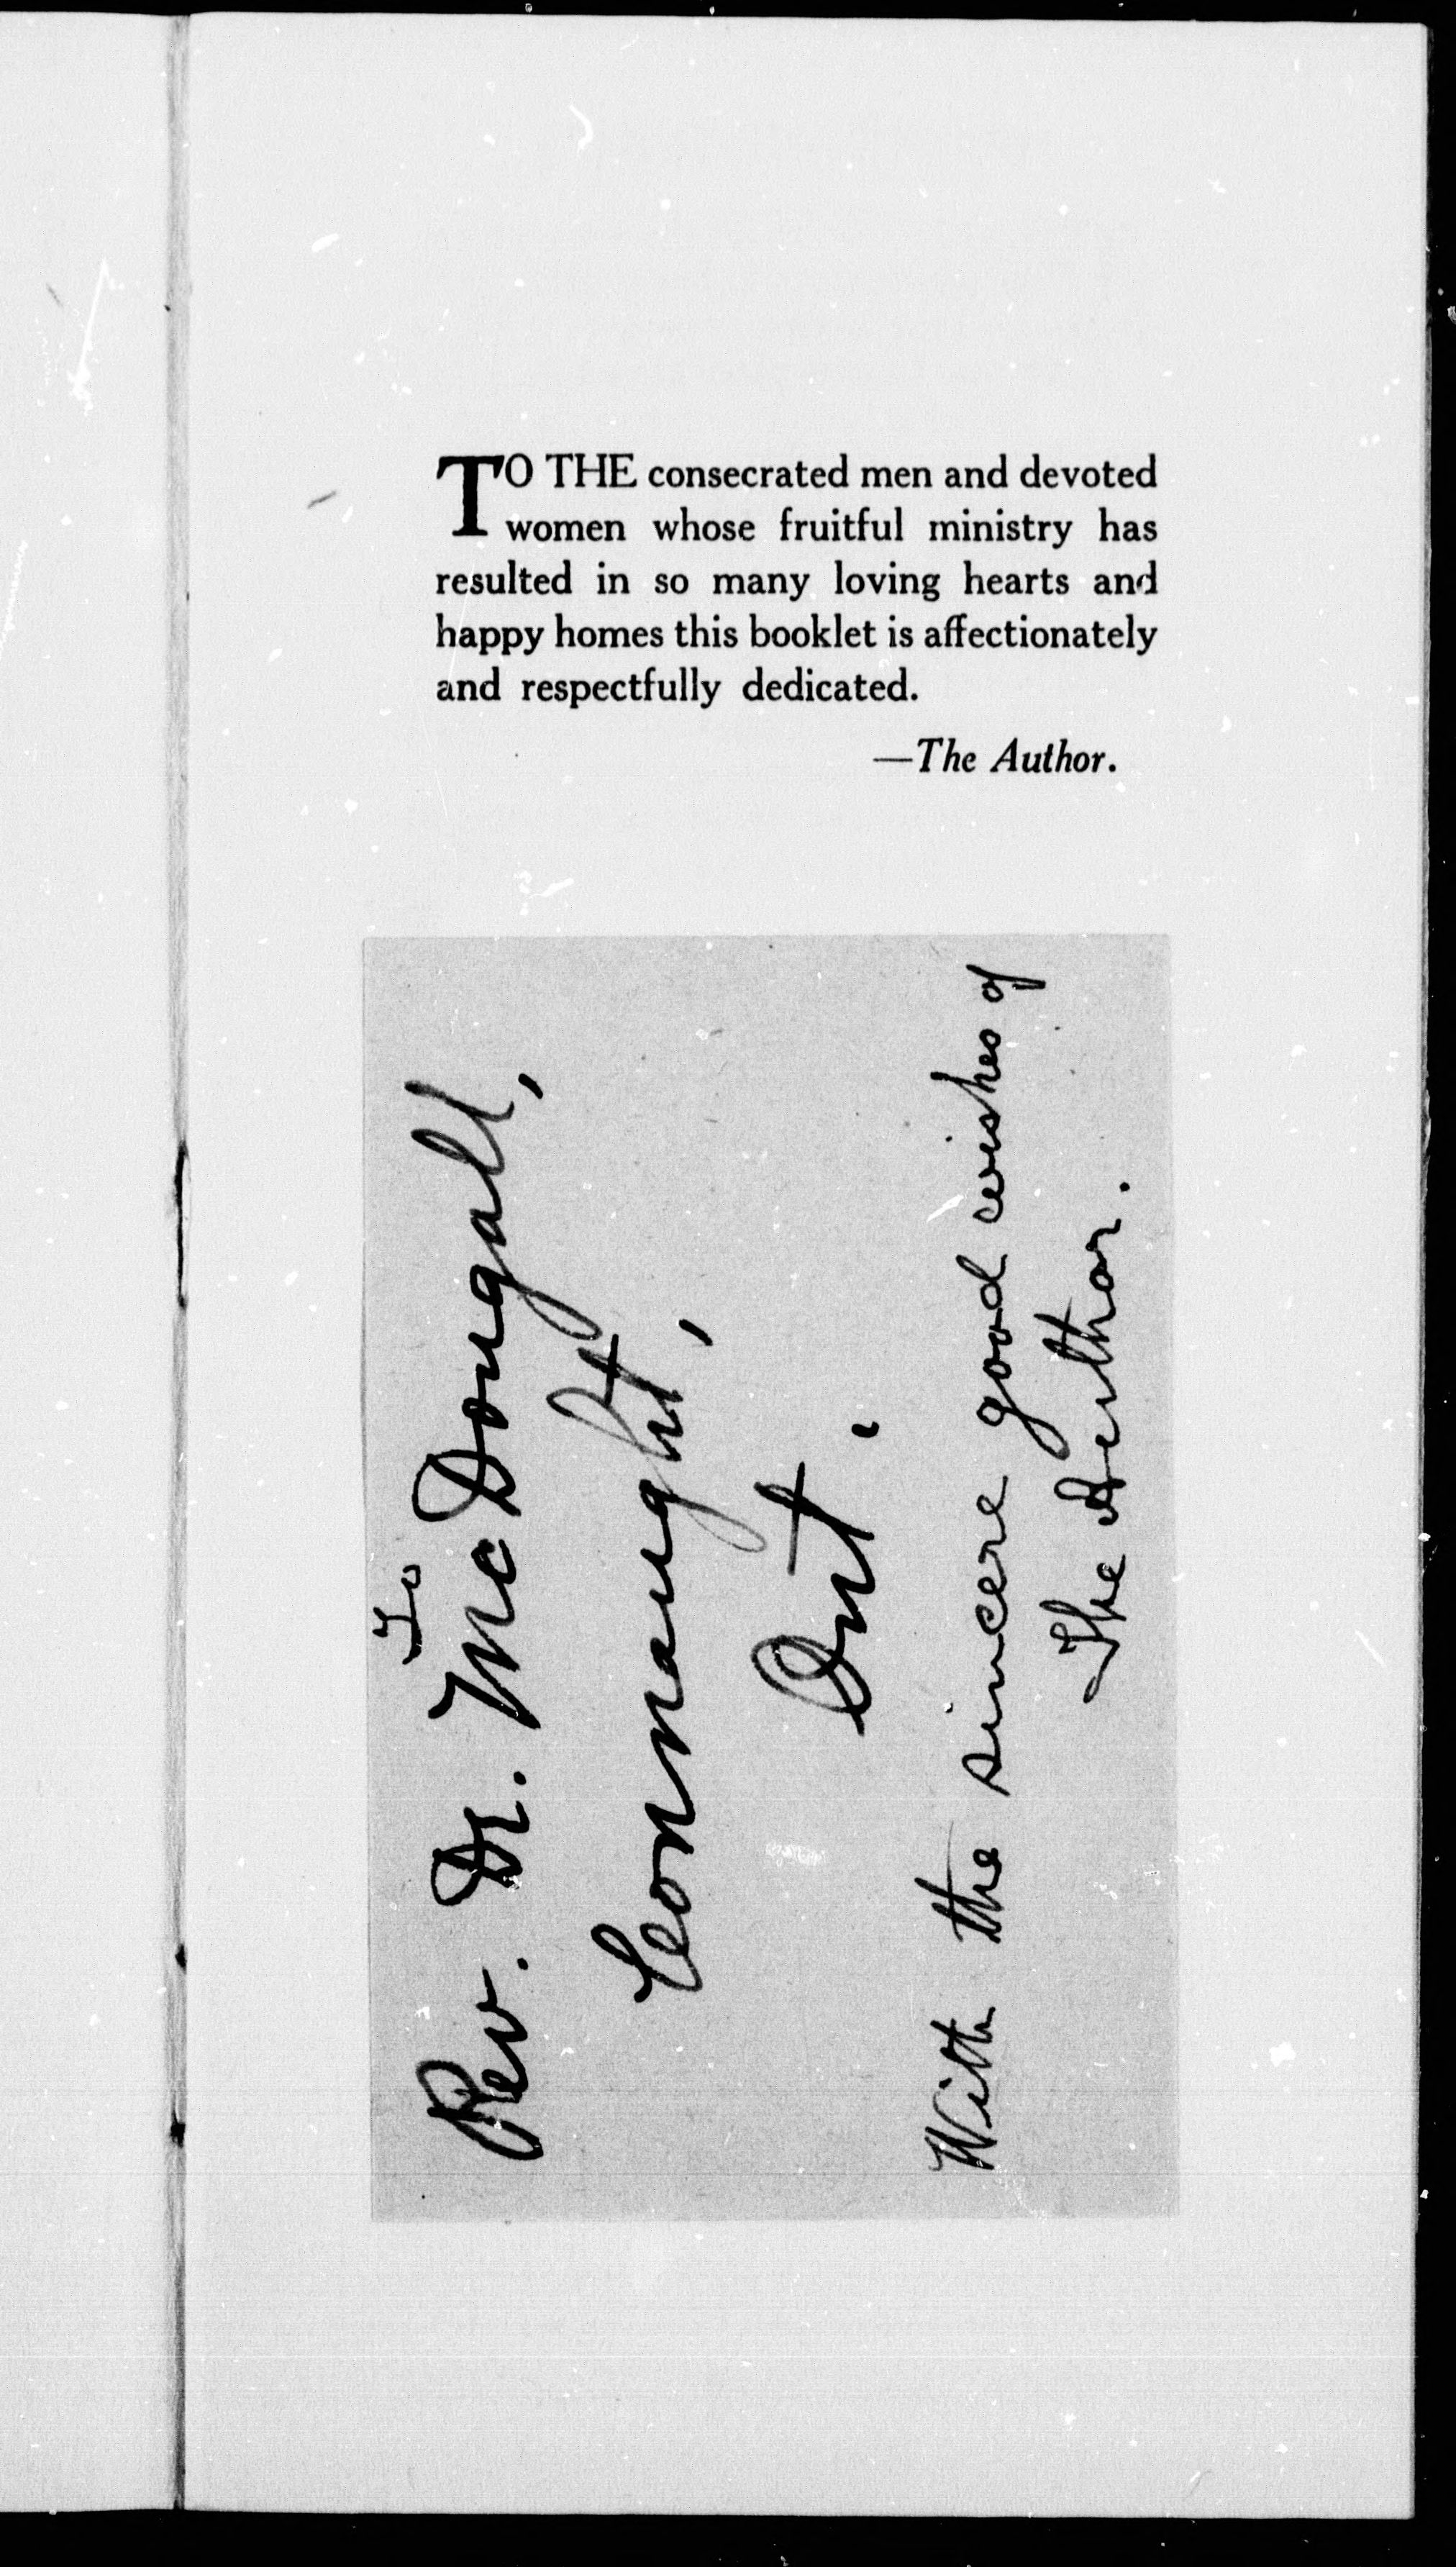 TO THE consecrated men and devoted
women whose fruitful ministry has
resulted in so many loving hearts and
happy homes this booklet is affectionately
and respectfully dedicated.
—The Author.
To
Rev. Dr. McDougall,
Connaught,
Ont.
With the sincere good wishes of
The Author.